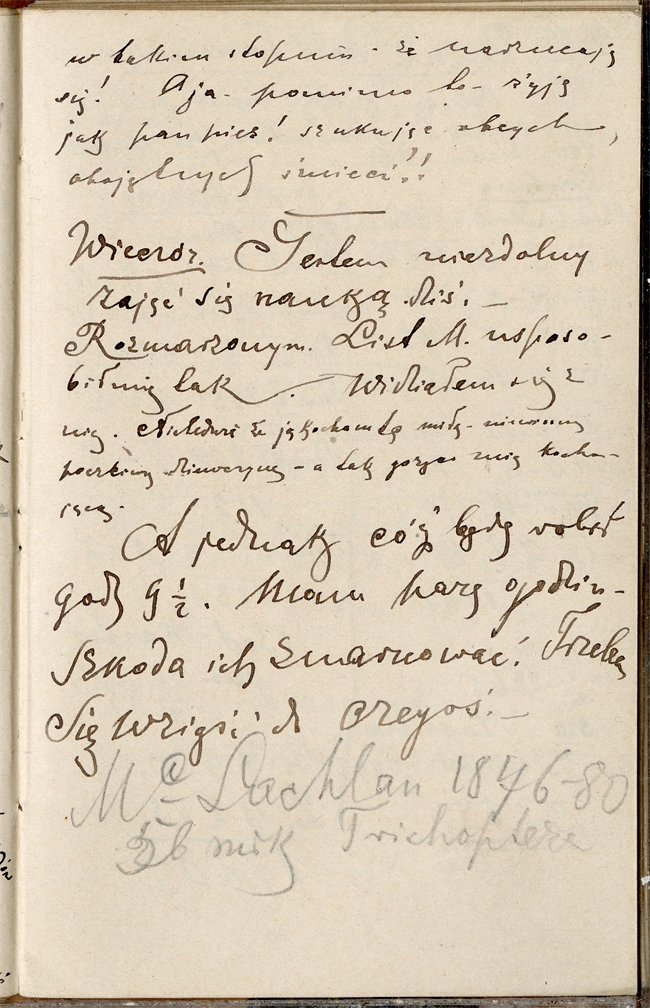 w takim stopniu - że narzucają
się! A ja - pomimo to - żyję
jak pan pies! szukając obcych,
obojętnych śmieci!!
Wieczór. Jestem niezdolny
zająć się nauką dziś. —
Rozmarzonym. List M. usposo-
bił mię tak. Widziałem się z
nią. że ją kocham tą miłą - niewinną
poczciwą dziewczynę - a tak gorąco mię kocha-
jącą.
A jednak cóż będę robił
godz 9 1/2. Mam parę godzin -
Szkoda ich zmarnować! Trzeba
się wziąść do czegoś. —
Mc Lachlan 1876-80
Trichoptera